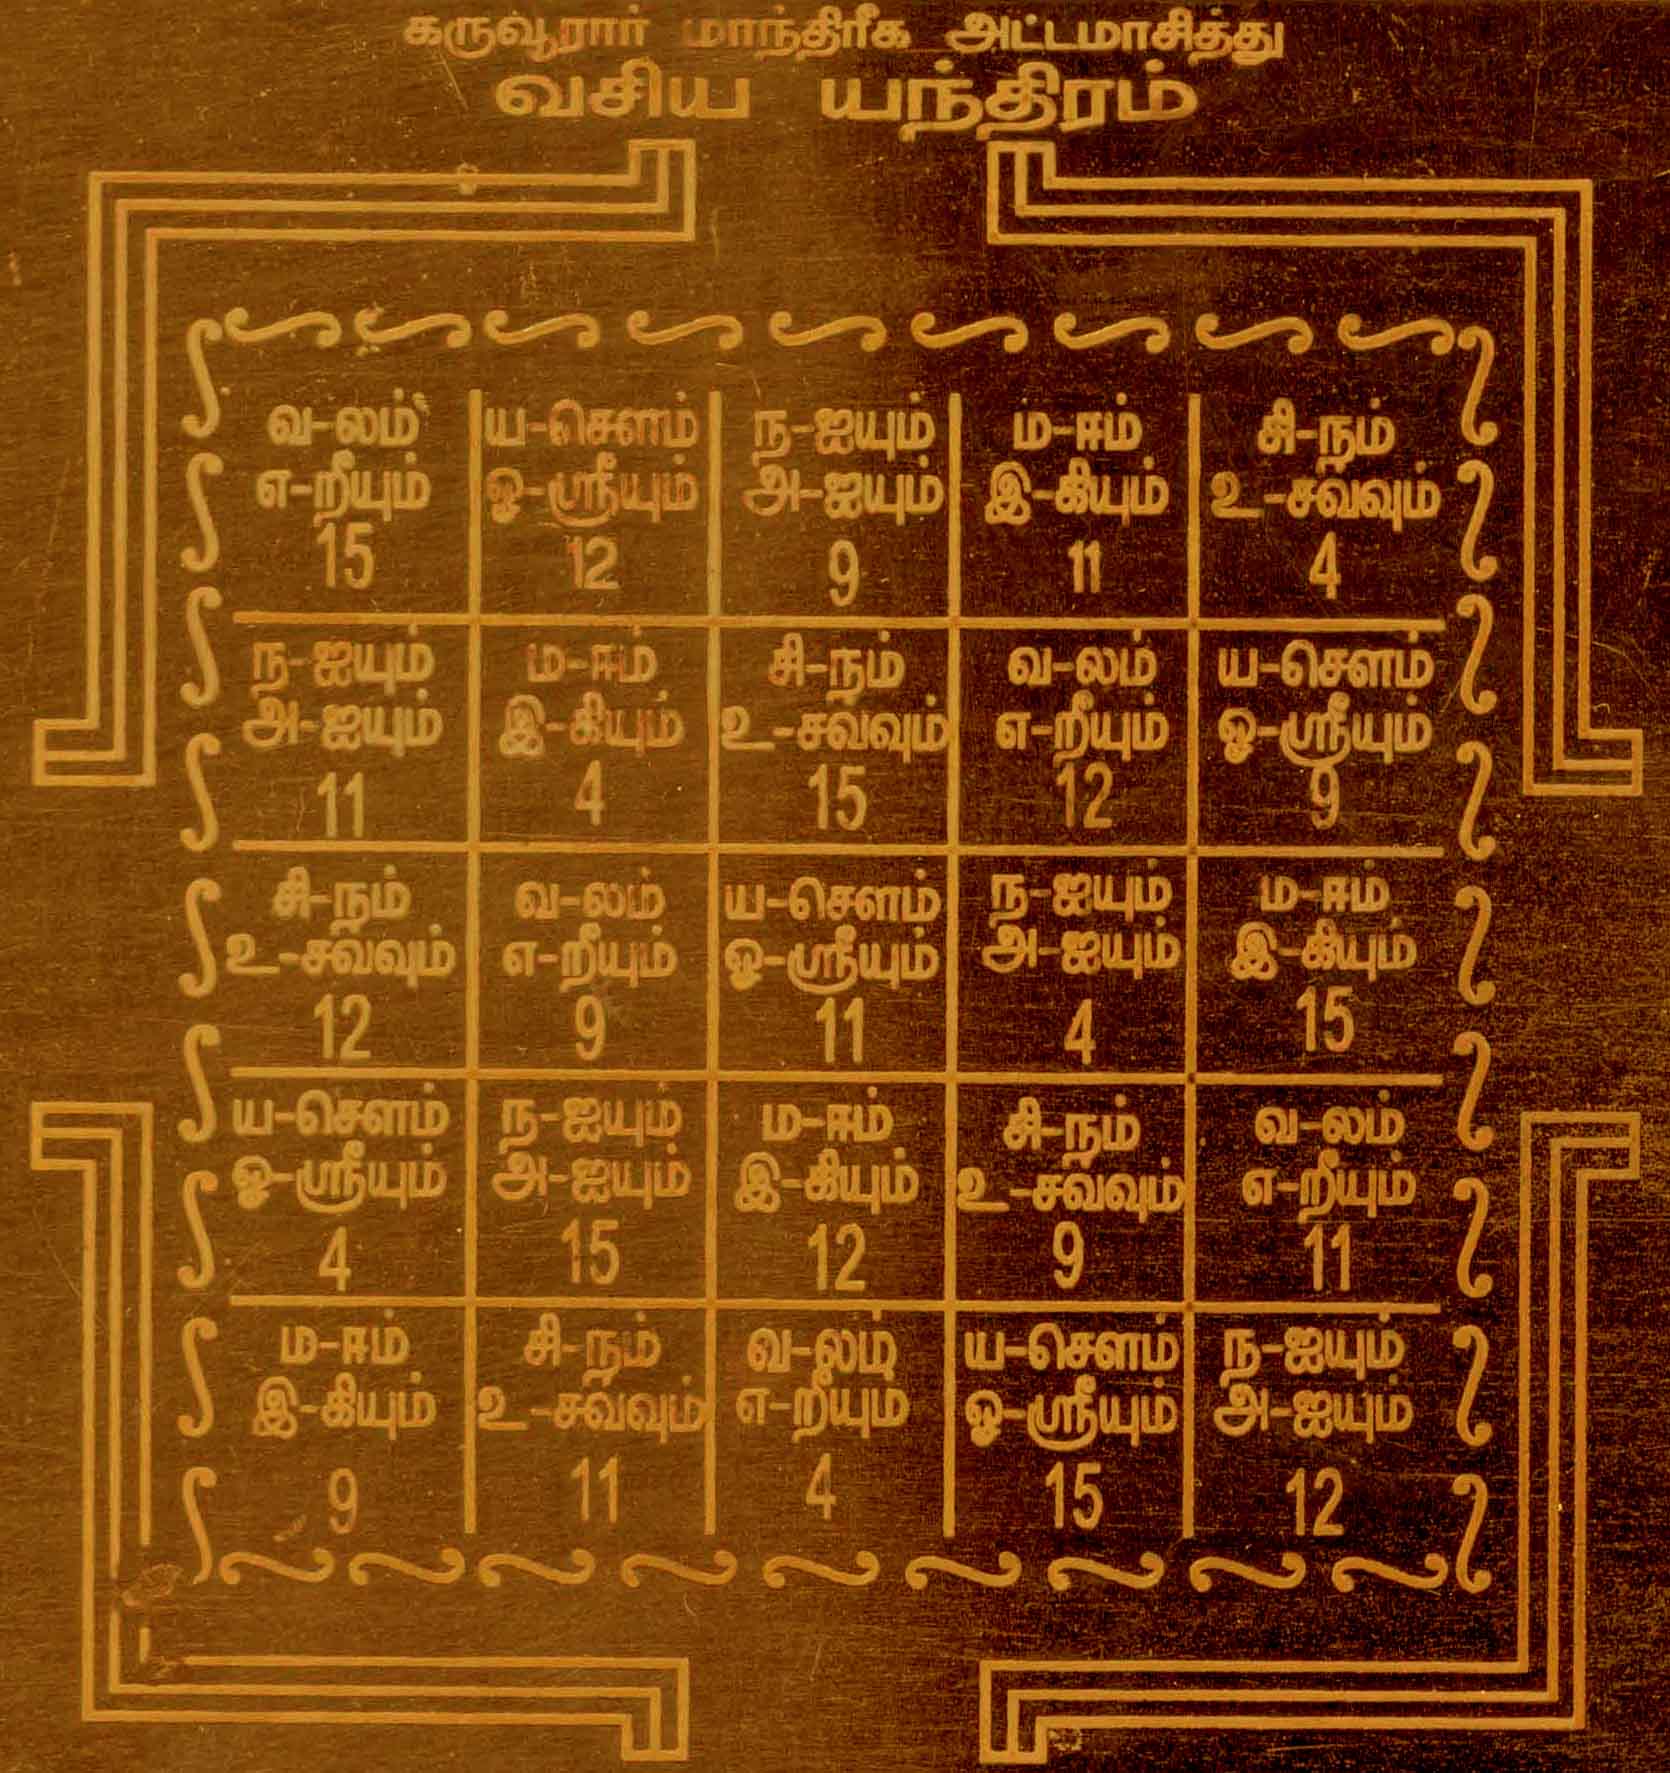 கருவூரார் மாந்திரீக அட்டமாசித்து
வசிய யந்திரம்
வ-லம் ய-சௌம் ந-ஐயும் ம-ஈம் சி-நம்
எ-றீயும் ஓ-ஸ்ரீயும் அ-ஐயும் இ-கியும் உ-சவ்வும்
15 12 9 11 4
ந-ஐயும் ம-ஈம் சி-நம் வ-லம் ய-சௌம்
அ-ஐயும் இ-கியும் உ-சவ்வும் எ-றீயும் ஓ-ஸ்ரீயும்
11 4 15 12 9
சி-நம் வ-லம் ய-சௌம் ந-ஐயும் ம-ஈம்
உ-சவ்வும் எ-றீயும் ஓ-ஸ்ரீயும் அ-ஐயும் இ-கியும்
12 9 11 4 15
ய-சௌம் ந-ஐயும் ம-ஈம் சி-நம் வ-லம்
ஓ-ஸ்ரீயும் அ-ஐயும் இ-கியும் உ-சவ்வும் எ-றீயும்
4 15 12 9 11
ம-ஈம் சி-நம் வ-லம் ய-சௌம் ந-ஐயும்
இ-கியும் உ-சவ்வும் எ-றீயும் ஓ-ஸ்ரீயும் அ-ஐயும்
9 11 4 15 12